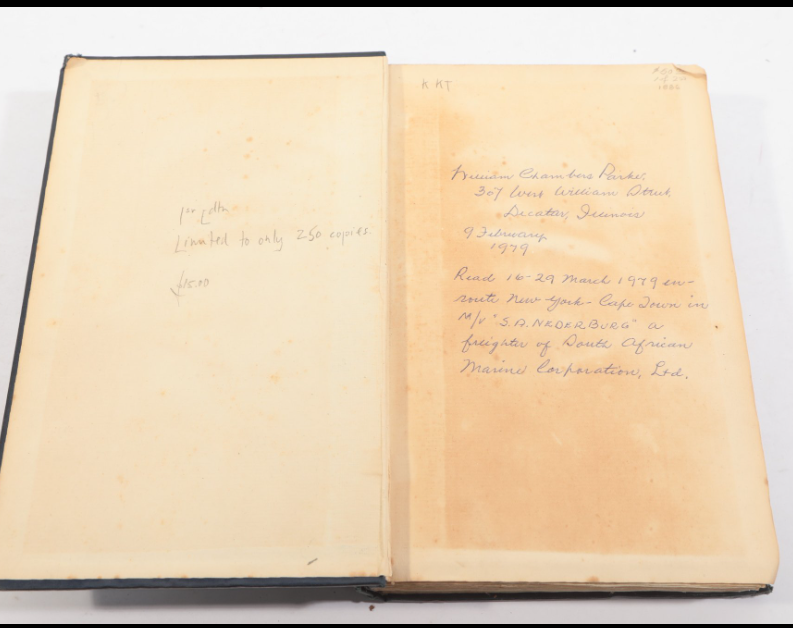 1st Edtn
Limited to only 250 copies.
$15.00
K KT
1882
William Chambers Parke,
307 West William Street
Decatur, Illinois
9 February
1979
Read 16-29 March 1979 en-
route New York - Cape Town in
M/V "S.A. NEDERBURG" a
freighter of South African
Marine Corporation, Ltd.